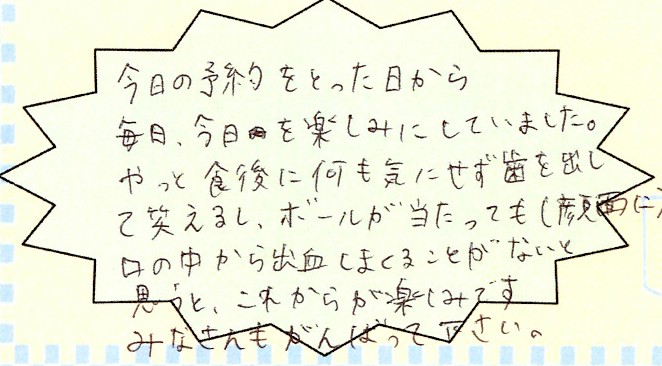 今日の予約をとった日から
毎日、今日を楽しみにしていました。
やっと食後に何も気にせず歯を出し
て笑えるし、ボールが当たっても(顔面に)
口の中から出血しまくることがないと
思うと、これからが楽しみです
みなさんもがんばって下さい。